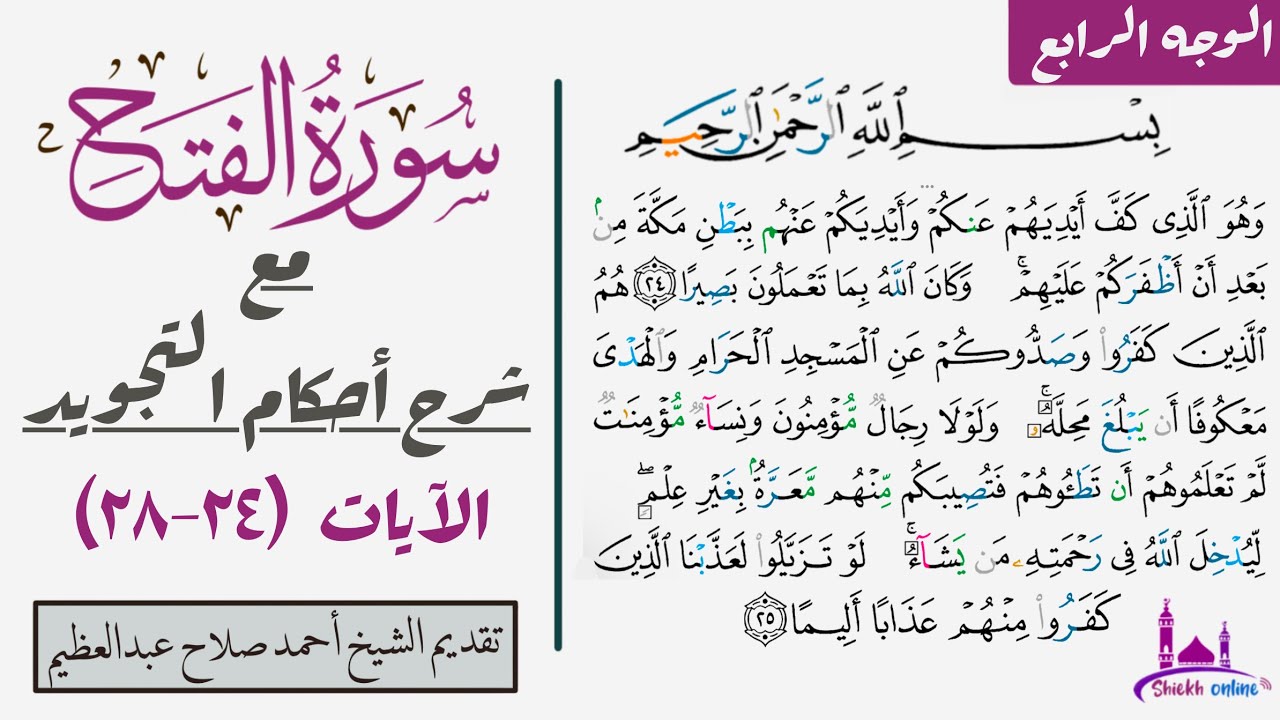 الوجه الرابع
سُورَةُ الفَتۡحِ
مع
شرح أحكام التجويد
الآيات (٢٤-٢٨)
تقديم الشيخ أحمد صلاح عبدالعظيم
بِسۡمِ ٱللَّهِ ٱلرَّحۡمَٰنِ ٱلرَّحِيمِ
وَهُوَ ٱلَّذِى كَفَّ أَيۡدِيَهُمۡ عَنكُمۡ وَأَيۡدِيَكُمۡ عَنۡهُم بِبَطۡنِ مَكَّةَ مِنۢ
بَعۡدِ أَنۡ أَظۡفَرَكُمۡ عَلَيۡهِمۡۚ وَكَانَ ٱللَّهُ بِمَا تَعۡمَلُونَ بَصِيرًا ٢٤ هُمُ
ٱلَّذِينَ كَفَرُواْ وَصَدُّوكُمۡ عَنِ ٱلۡمَسۡجِدِ ٱلۡحَرَامِ وَٱلۡهَدۡىَ
مَعۡكُوفًا أَن يَبۡلُغَ مَحِلَّهُۥۚ وَلَوۡلَا رِجَالٞ مُّؤۡمِنُونَ وَنِسَآءٞ مُّؤۡمِنَٰتٞ
لَّمۡ تَعۡلَمُوهُمۡ أَن تَطَـُٔوهُمۡ فَتُصِيبَكُم مِّنۡهُم مَّعَرَّةُۢ بِغَيۡرِ عِلۡمٖۖ
لِّيُدۡخِلَ ٱللَّهُ فِى رَحۡمَتِهِۦ مَن يَشَآءُۚ لَوۡ تَزَيَّلُواْ لَعَذَّبۡنَا ٱلَّذِينَ
كَفَرُواْ مِنۡهُمۡ عَذَابًا أَلِيمًا ٢٥
Shiekh online